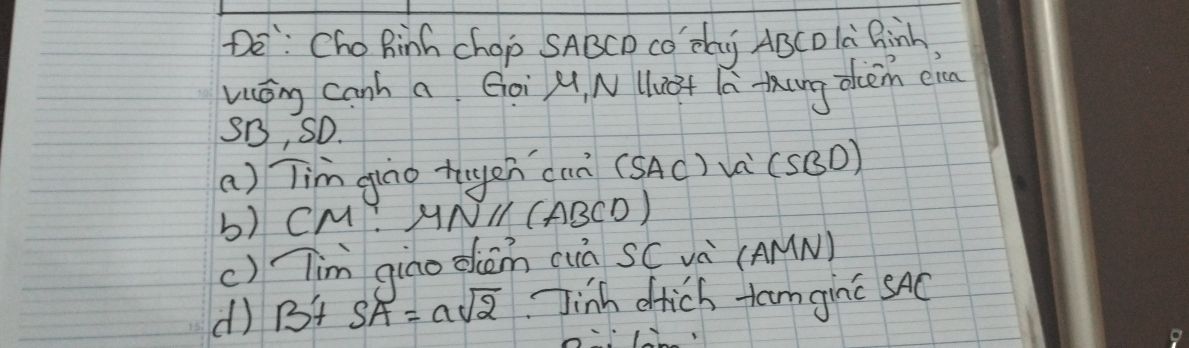 Đề: Cho hình chóp SABCD có đáy ABCD là hình
vuông cạnh a. Gọi M, N llượt là trung điểm của
SB, SD.
a) Tìm giao tuyến của (SAC) và (SBD)
b) CM: MN // (ABCD)
c) Tìm giao điểm của SC và (AMN)
d) Bt SA = a√2. Tính dtích tam giác SAC